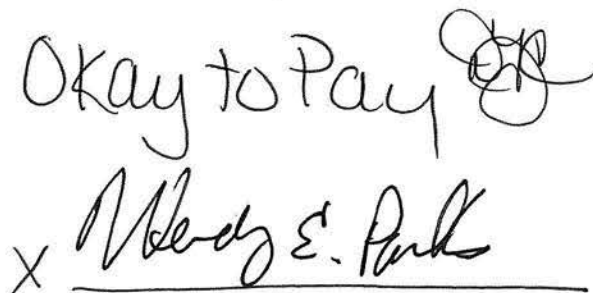 Okay to Pay
X Wendy E. Parks